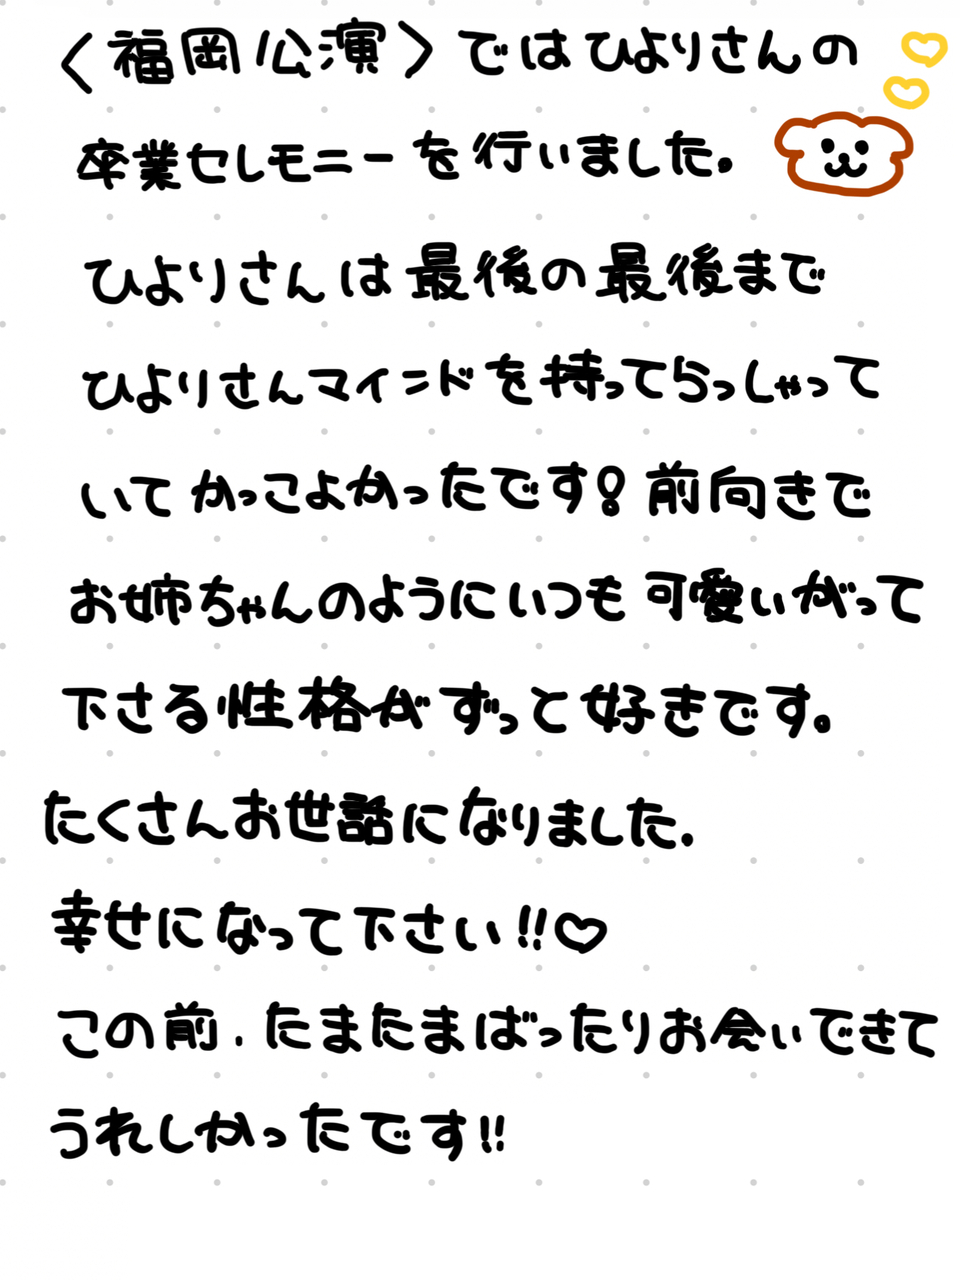 〈福岡公演〉ではひよりさんの
卒業セレモニーを行いました。
ひよりさんは最後の最後まで
ひよりさんマインドを持ってらっしゃって
いてかっこよかったです!前向きで
お姉ちゃんのようにいつも可愛いがって
下さる性格がずっと好きです。
たくさんお世話になりました.
幸せになって下さい!!♡
この前、たまたまばったりお会いできて
うれしかったです!!